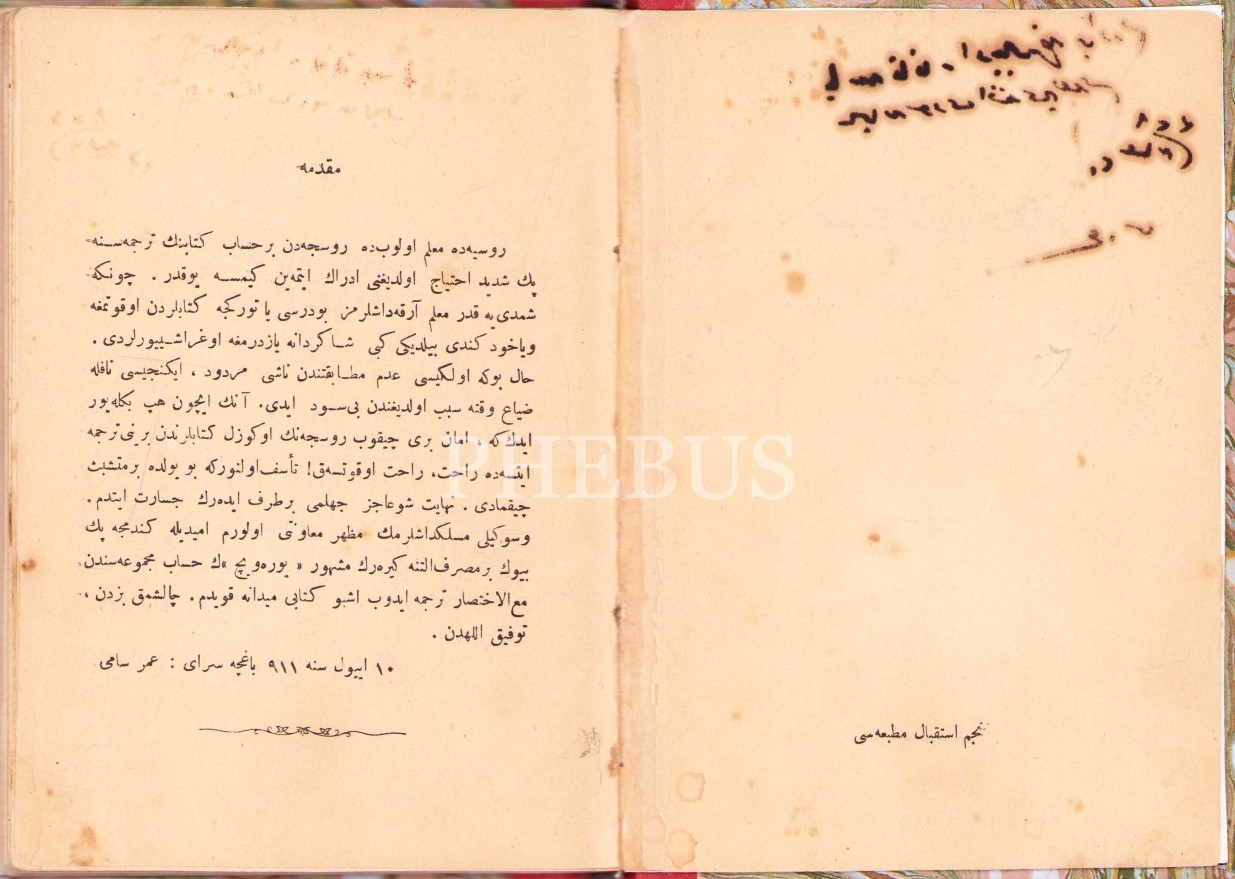 نجم استقبال مطبعه‌سی
مقدمه
روسیه‌ده معلم اولوب‌ده روسجه‌دن برحساب کتابنك ترجمه‌سنه
پك شدید احتیاج اولدیغنی ادراك ایتمه‌ین کیمسه یوقدر . چونکه
شمدی‌یه قدر معلم آرقه‌داشلرمز بودرسی یا تورکجه کتابلردن اوقوتمغه
ویاخود کندی بیلدیکی کبی شاکردانه یازدرمغه اوغراشییورلردی .
حال بوکه اولکیسی عدم مطابقتندن ناشی مردود ، ایکنجیسی نافله
ضیاع وقته سبب اولدیغندن بی‌سود ایدی. آنك ایچون هپ بکله‌یور
ایدك‌که ، امان بری چیقوب روسجه‌نك اوکوزل کتابلرندن برینی ترجمه
ایتسه‌ده راحت، راحت اوقوتسه‌ق! تأسف‌اولنورکه بو یولده برمتشبث
چیقمادی . نهایت شوعاجز جهلمی برطرف ایده‌رك جسارت ایتدم .
وسوکیلی مسلکداشلرمك مظهر معاونتی اولورم امیدیله کندمجه پك
بیوك برمصرف‌التنه کیره‌رك مشهور « یوره‌ویچ »ك حساب مجموعه‌سندن
مع‌الاختصار ترجمه ایدوب اشبو کتابی میدانه قویدم . چالشمق بزدن ،
توفیق اللهدن .
١٠ اییول سنه ٩١١ باغچه سرای : عمر سامی
PHEBUS